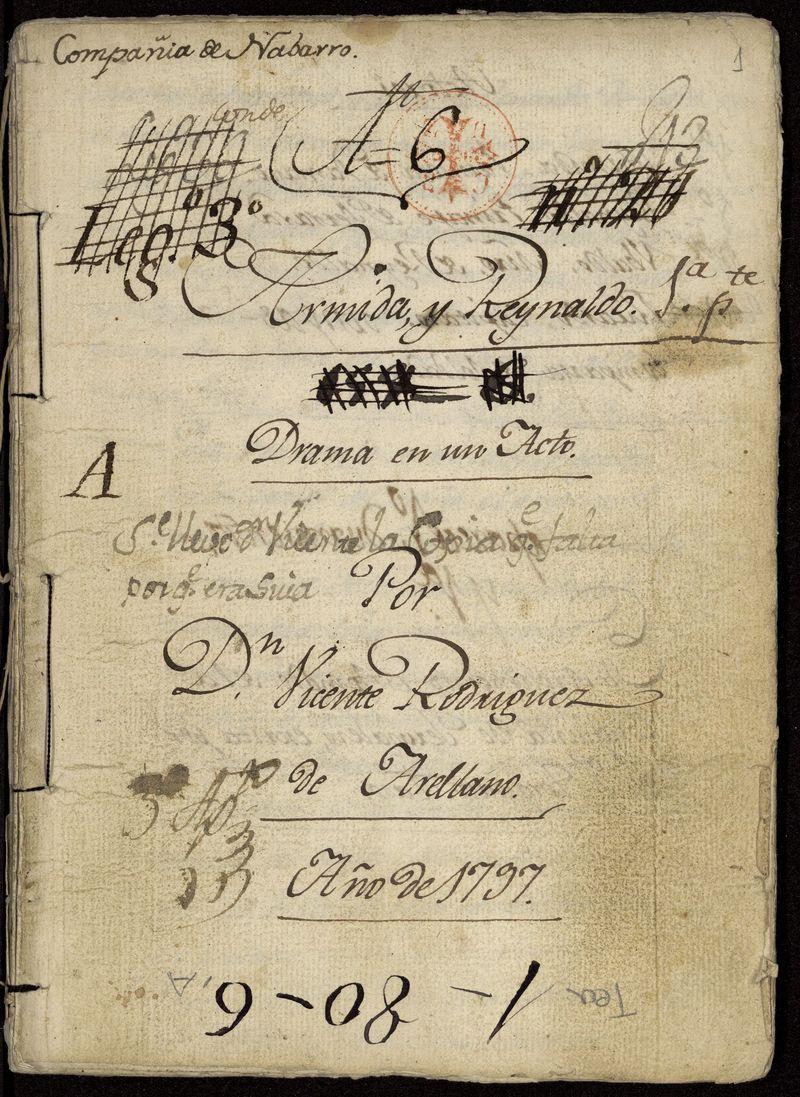 1
Compañia de Nabarro.
Conde
A= 6
Leg.º 3º
Armida, y Reynaldo. 1ª pte
Drama en un Acto.
A
Se llevó Dn Vicente la Copia qe falta
porq.e era Suia
Por
D.n Vicente Rodriguez
de Arellano.
Año de 1797.
Tea
1-80-6, A